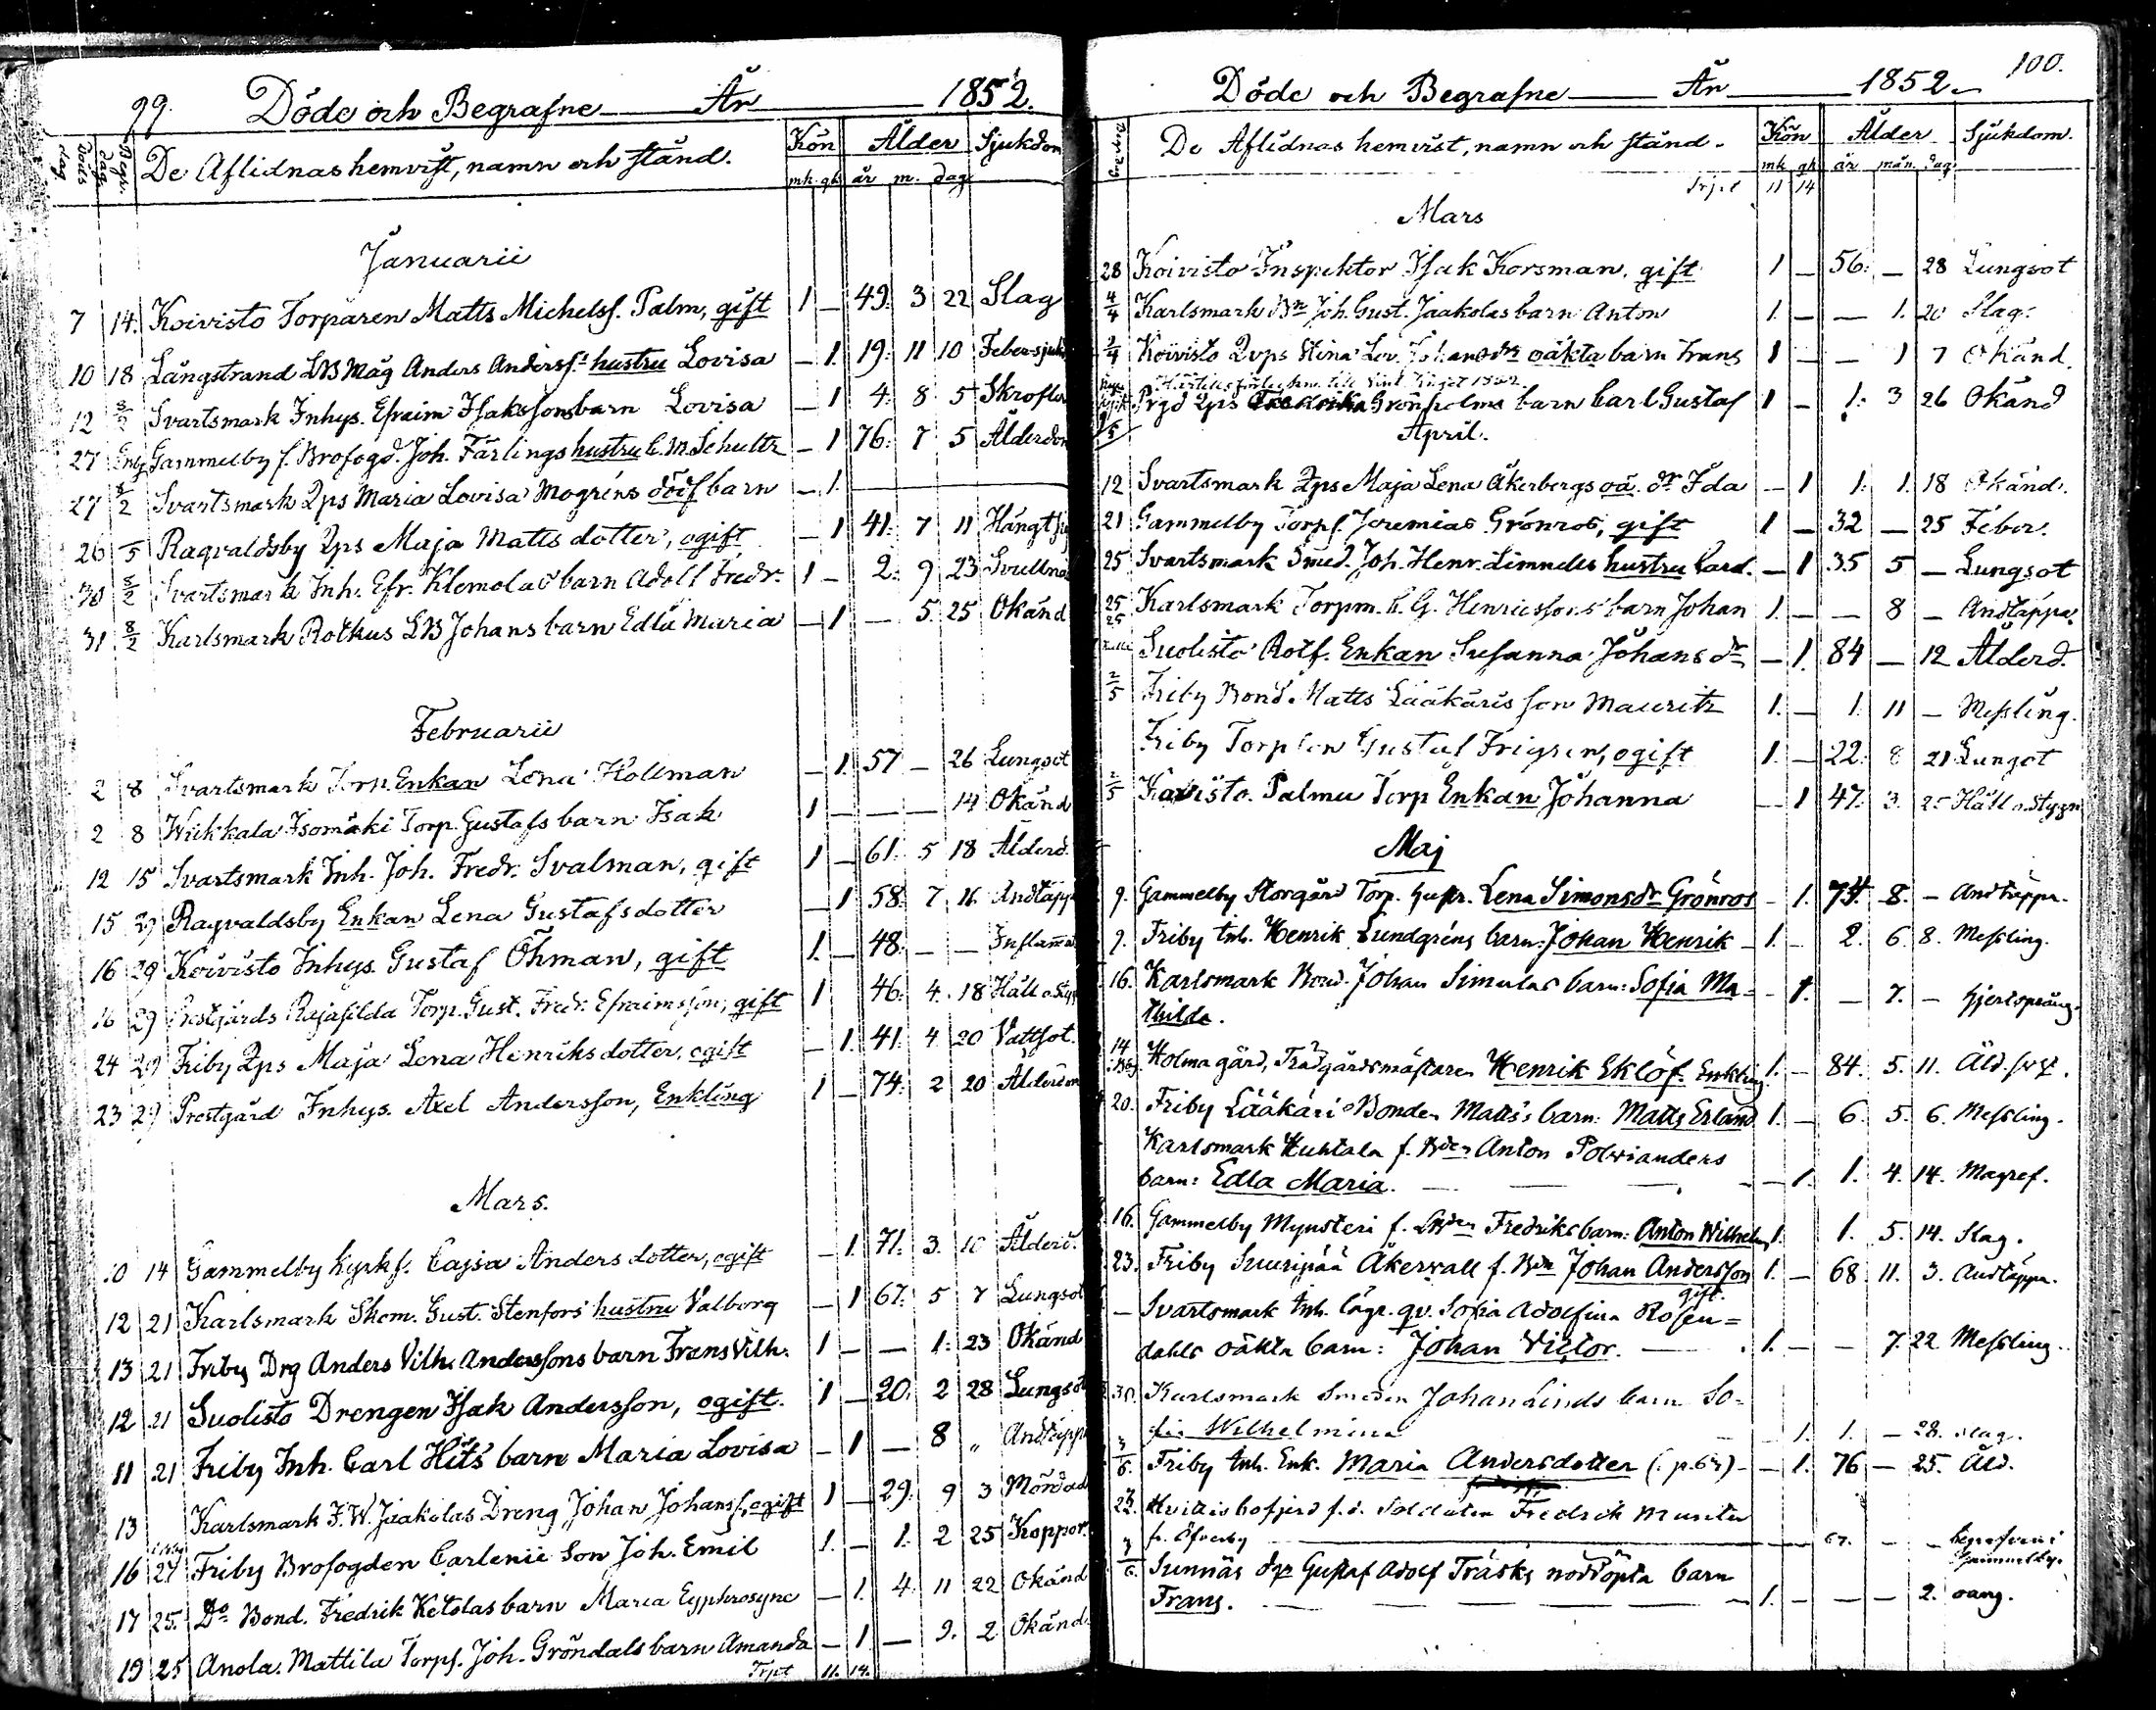 99. Döde och Begrafne År 1852.
Döds dag Begr. dag De Aflidnas hemvist, namn och stånd. Kön Ålder Sjukdom
mk. qk. år m. dag
Januarii
7 14. Koivisto Torparen Matts Michelss. Palm, gift 1 — 49. 3 22 Slag
10 18 Långstrand LB Måg Anders Anderss:s hustru Lovisa — 1. 19. 11 10 Febersjuk
12 8/2 Svartsmark Inhys. Efraim Isakssons barn Lovisa — 1 4. 8 5 Skrofler
27 Gammelby f. Brofogd. Joh. Färlings hustru C. M. Schultz — 1 76. 7 5 Ålderdom
27 8/2 Svartsmark Qps Maria Lovisa Mogréns dödf barn — 1.
26 /5 Ragvaldsby Qps Maja Matts dotter, ogift — 1 41. 7 11 Hängt sig
30 8/2 Svartsmark Inh. Efr. Klemolas barn Adolf Fredr. 1 — 2. 9 23 Svullnad
31 8/2 Karlsmark Rotkus LB Johans barn Edla Maria — 1 — 5. 25 Okänd
Februarii
2 8 Svartsmark Torp. Enkan Lena Hollman — 1. 57 — 26 Lungsot
2 8 Wiikkala Isomäki Torp. Gustafs barn Isak 1 — — — 14 Okänd
12 15 Svartsmark Inh. Joh. Fredr. Svalman, gift 1 — 61. 5 18 Ålderd.
15 29 Ragvaldsby Enkan Lena Gustafsdotter — 1 58. 7. 16 Andtäpp
16 29 Koivisto Inhys. Gustaf Öhman, gift 1. — 48. — — Inflamma
16 29 Prestgårds Rajasilda Torp. Gust. Fredr. Efraimsson, gift 1 46. 4. 18 Håll o Sty
24 29 Friby Qps Maja Lena Henriksdotter, ogift — 1. 41. 4 20 Vattsot.
23 29 Prestgård Inhys. Axel Andersson, Enkling 1 — 74. 2 20 Ålderdom
Mars.
10 14 Gammelby Kyrkf. Cajsa Anders dotter, ogift — 1. 71. 3. 10 Ålderd.
12 21 Karlsmark Skom. Gust. Stenfors hustru Valborg — 1 67. 5 7 Lungsot
13 21 Friby Drg Anders Vilh. Anderssons barn Frans Vilh. 1 — — 1. 23 Okänd
12 21 Suolisto Drengen Isak Andersson, ogift. 1 — 20. 2 28 Lungsot
11 21 Friby Inh. Carl Hiits barn Maria Lovisa — 1 — 8 „ Andtäpp
13 Karlsmark F. W. Jaakolas Dreng Johan Johanss, ogift 1 — 29. 9 3 Mördad
16 27 Friby Brofogden Carlenii Son Joh. Emil 1. — 1. 2 25 Koppor.
17 25. Do Bond. Fredrik Ketolas barn Maria Eyphrosyne — 1. 4. 11 22 Okänd
19 25 Anola. Mattila Torpf. Joh. Gröndals barn Amanda — 1. — 9. 2 Okänd
Trpt 11. 14.
Döde och Begrafne År 1852. 100.
De Aflidnas hemvist, namn och stånd. Kön Ålder Sjukdom.
mk qk år mån. dag
Trpt 11 14
Mars
28 Koivisto Inspektor Isak Korsman, gift 1 — 56. — 28 Lungsot
4/4 Karlsmark Bn Joh. Gust. Jaakolas barn Anton 1. — — 1. 20 Slag.
Koivisto Qvps Stina Lov. Johansdrs oäkta barn Frans 1 — — 1 7 Okänd.
Prgd Qps Fredrika Grönholms barn Carl Gustaf 1 — 1. 3 26 Okänd
April.
12 Svartsmark Qps Maja Lena Åkerbergs oä. dr Ida — 1 1. 1. 18 Okänd.
21 Gammelby Torpf. Jeremias Grönros, gift 1 — 32 — 25 Feber.
25 Svartsmark Smed. Joh. Henr. Limnells hustru Carol. — 1 35 5 — Lungsot
25 Karlsmark Torpm. C. G. Henricssons barn Johan 1. — — 8 — Andtäppa.
Suolisto Rotf. Enkan Susanna Johansdr — 1. 84 — 12 Ålderd.
2/5 Friby Bond. Matts Lääkäris son Mauritz 1. — 1. 11 — Messling.
Friby Torp son Gustaf Frigren, ogift 1. — 22. 8 21 Lungot
2/5 Kovisto. Palmu Torp Enkan Johanna — 1 47. 3. 25 Håll o. Stygn
Maj
9. Gammelby Storgård Torp. hustr. Lena Simonsdr Grönros — 1. 74. 8. — Andtäppa.
9. Friby Inh. Henrik Lundgréns barn: Johan Henrik — 1. — 2. 6. 8. Messling.
16. Karlsmark Bond. Johan Simulas barn: Sofia Ma-
thilda. — 1. — 7. — hjertsprång.
14 Holma gård, Trädgårdsmästaren Henrik Eklöf. Enkling 1. — 84. 5. 11. Åld.
20. Friby Lääkäri Bonden Matts's barn: Matts Erland 1. — 6. 5. 6. Messling.
Karlsmark Huhtala f. Bden Anton Polvianders
barn: Edla Maria. — 1. 1. 4. 14. Magref.
16. Gammelby Mynsteri f. LBden Fredriks barn: Anton Wilhelm 1. 1. 5. 14. Slag.
23. Friby Suuripää Åkerwall f. Bdn Johan Andersson 1. — 68. 11. 3. Andtäppa.
gift.
— Svartsmark Inh. lägr. qv. Sofia Adolfina Rosen=
dahls oäkta barn: Johan Victor. 1. — — 7. 22 Messling.
30. Karlsmark Smeden Johan Linds barn So-
fia Wilhelmina — 1. 1. — 28. Slag.
Friby Inh. Enk. Maria Andersdotter — 1. 76 — 25. Åld.
f.d. Soldaten Fredrik Munter
fr. Öfverby 67. — — begrafven i Gammelby.
Sunnäs drg Gustaf Adolf Träsks nöddöpta barn
Frans. 1. — — — 2. oang.